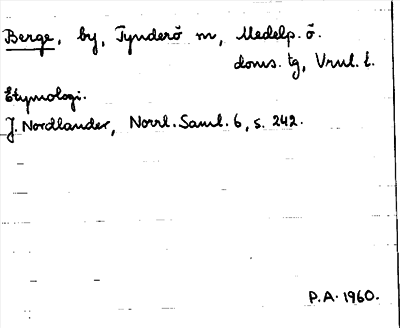 Berge, by, Tynderö sn, Medelp. ö.
doms. tg, Vrnl. l.
Etymologi.
J. Nordlander, Norrl. Saml. 6, s. 242.
P.A. 1960.